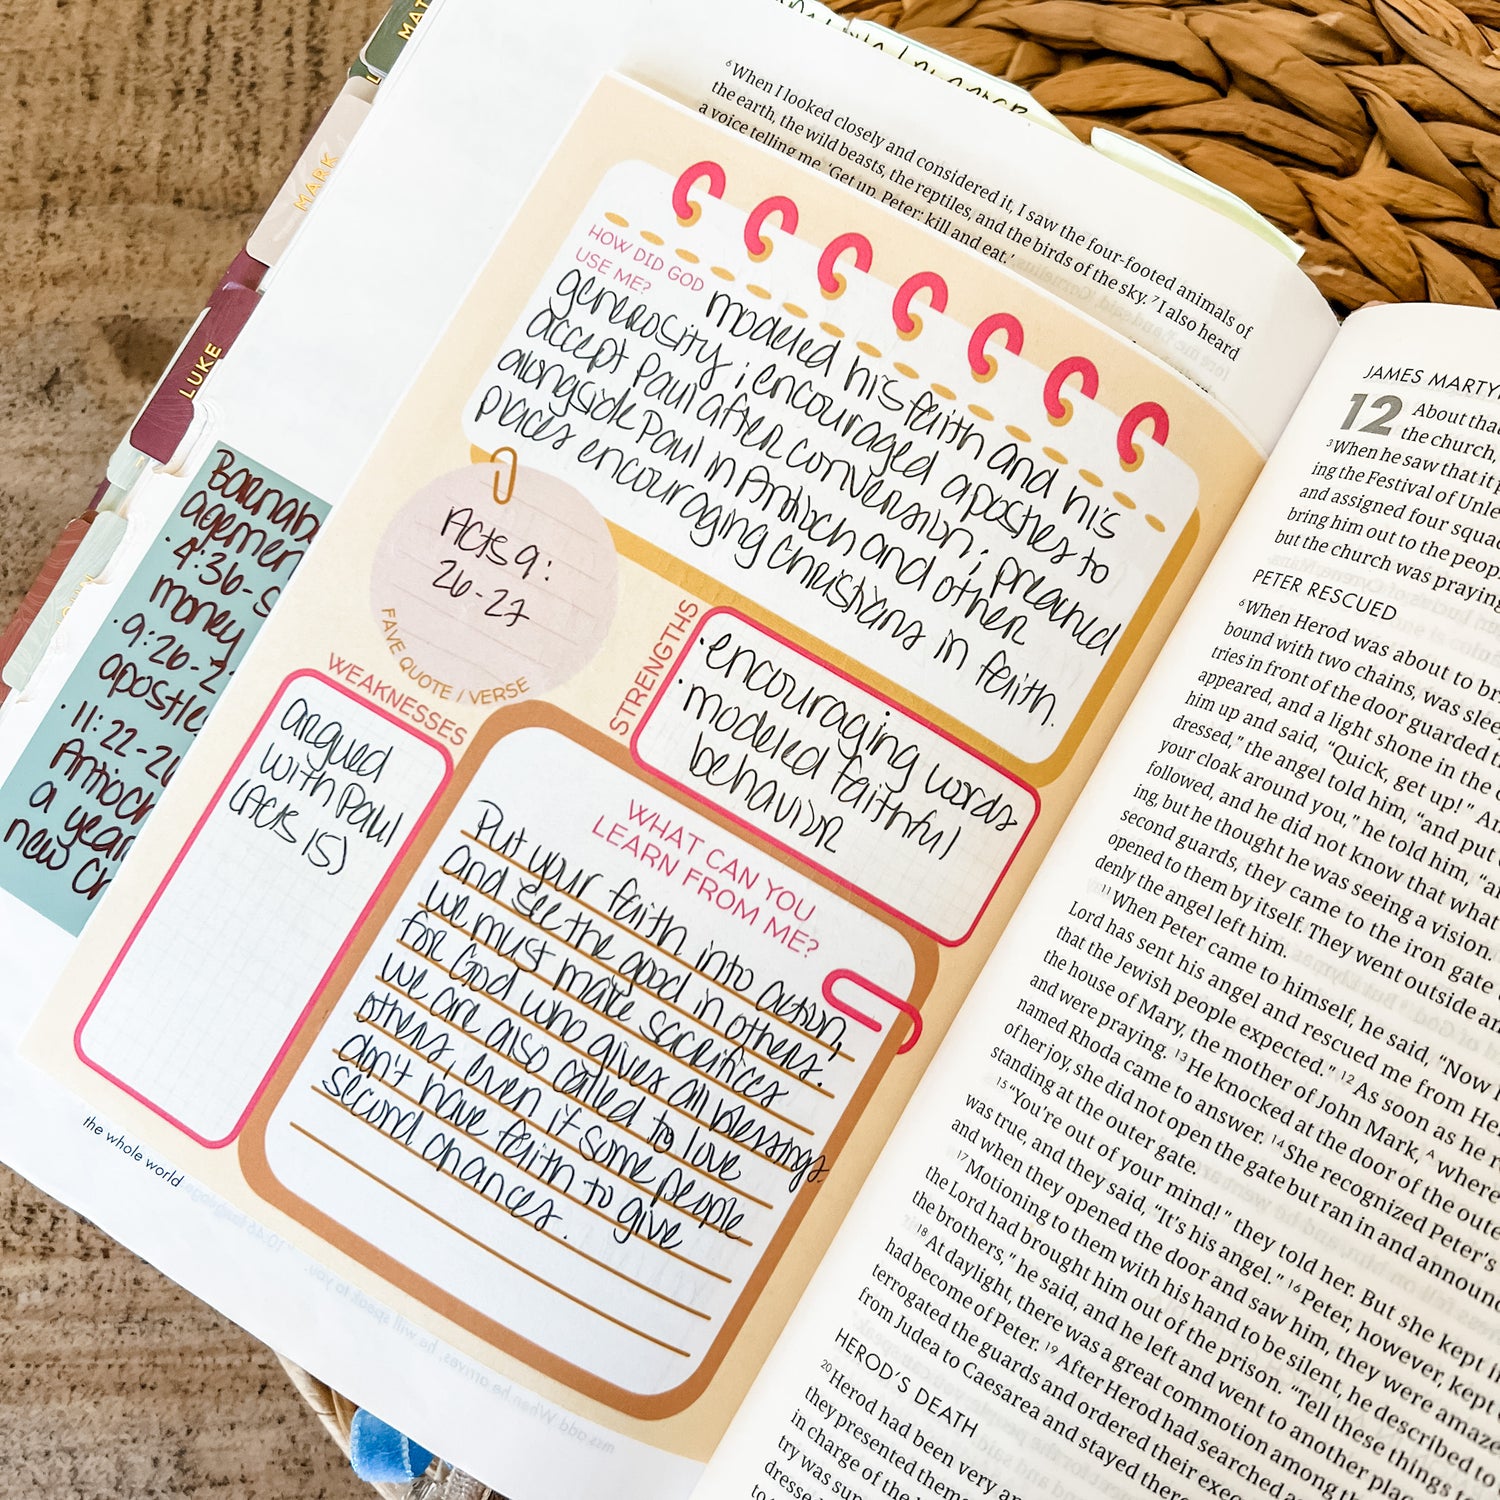 MAT
MARK
LUKE
JOHN
⁶ When I looked closely and considered it, I saw the four-footed animals of
the earth, the wild beasts, the reptiles, and the birds of the sky. ⁷ I also heard
a voice telling me, ‘Get up, Peter; kill and eat.’
HOW DID GOD
USE ME?
modeled his faith and his
generosity; encouraged apostles to
accept Paul after conversion; preached
alongside Paul in Antioch and other
places encouraging christians in faith.
Acts 9:
26-27
FAVE QUOTE / VERSE
STRENGTHS
·encouraging words
·modeled faithful
behavior
WEAKNESSES
argued
with Paul
(Acts 15)
WHAT CAN YOU
LEARN FROM ME?
Put your faith into action,
and see the good in others.
we must make sacrifices
for God who gives all blessings.
we are also called to love
others, even if some people
don't have faith to give
second chances.
Barnab
agemen
·4:36-
money
·9:26-2
apostle
·11:22-26
Antioch
a year
new Ch
the whole world
JAMES MARTY
12 About that
the church,
³ When he saw that it p
ing the Festival of Unle
and assigned four squa
bring him out to the peop
but the church was praying
PETER RESCUED
⁶ When Herod was about to br
bound with two chains, was slee
tries in front of the door guarded t
appeared, and a light shone in the c
him up and said, “Quick, get up!” An
dressed,” the angel told him, “and put
your cloak around you,” he told him, “an
followed, and he did not know that what
ing, but he thought he was seeing a vision.
second guards, they came to the iron gate
opened to them by itself. They went outside an
denly the angel left him.
¹¹ When Peter came to himself, he said, “Now I
Lord has sent his angel and rescued me from He
that the Jewish people expected.” ¹² As soon as he r
the house of Mary, the mother of John Mark, ᴬ where
and were praying. ¹³ He knocked at the door of the oute
named Rhoda came to answer. ¹⁴ She recognized Peter’s
of her joy, she did not open the gate but ran in and announc
standing at the outer gate.
¹⁵ “You’re out of your mind!” they told her. But she kept in
was true, and they said, “It’s his angel.” ¹⁶ Peter, however, kept
and when they opened the door and saw him, they were amaze
¹⁷ Motioning to them with his hand to be silent, he described to
the Lord had brought him out of the prison. “Tell these things to
the brothers,” he said, and he left and went to another plac
¹⁸ At daylight, there was a great commotion among th
had become of Peter. ¹⁹ After Herod had searched a
terrogated the guards and ordered their exec
from Judea to Caesarea and stayed there
HEROD’S DEATH
²⁰ Herod had been very an
they presented them
in charge of the
try was sup
dresse